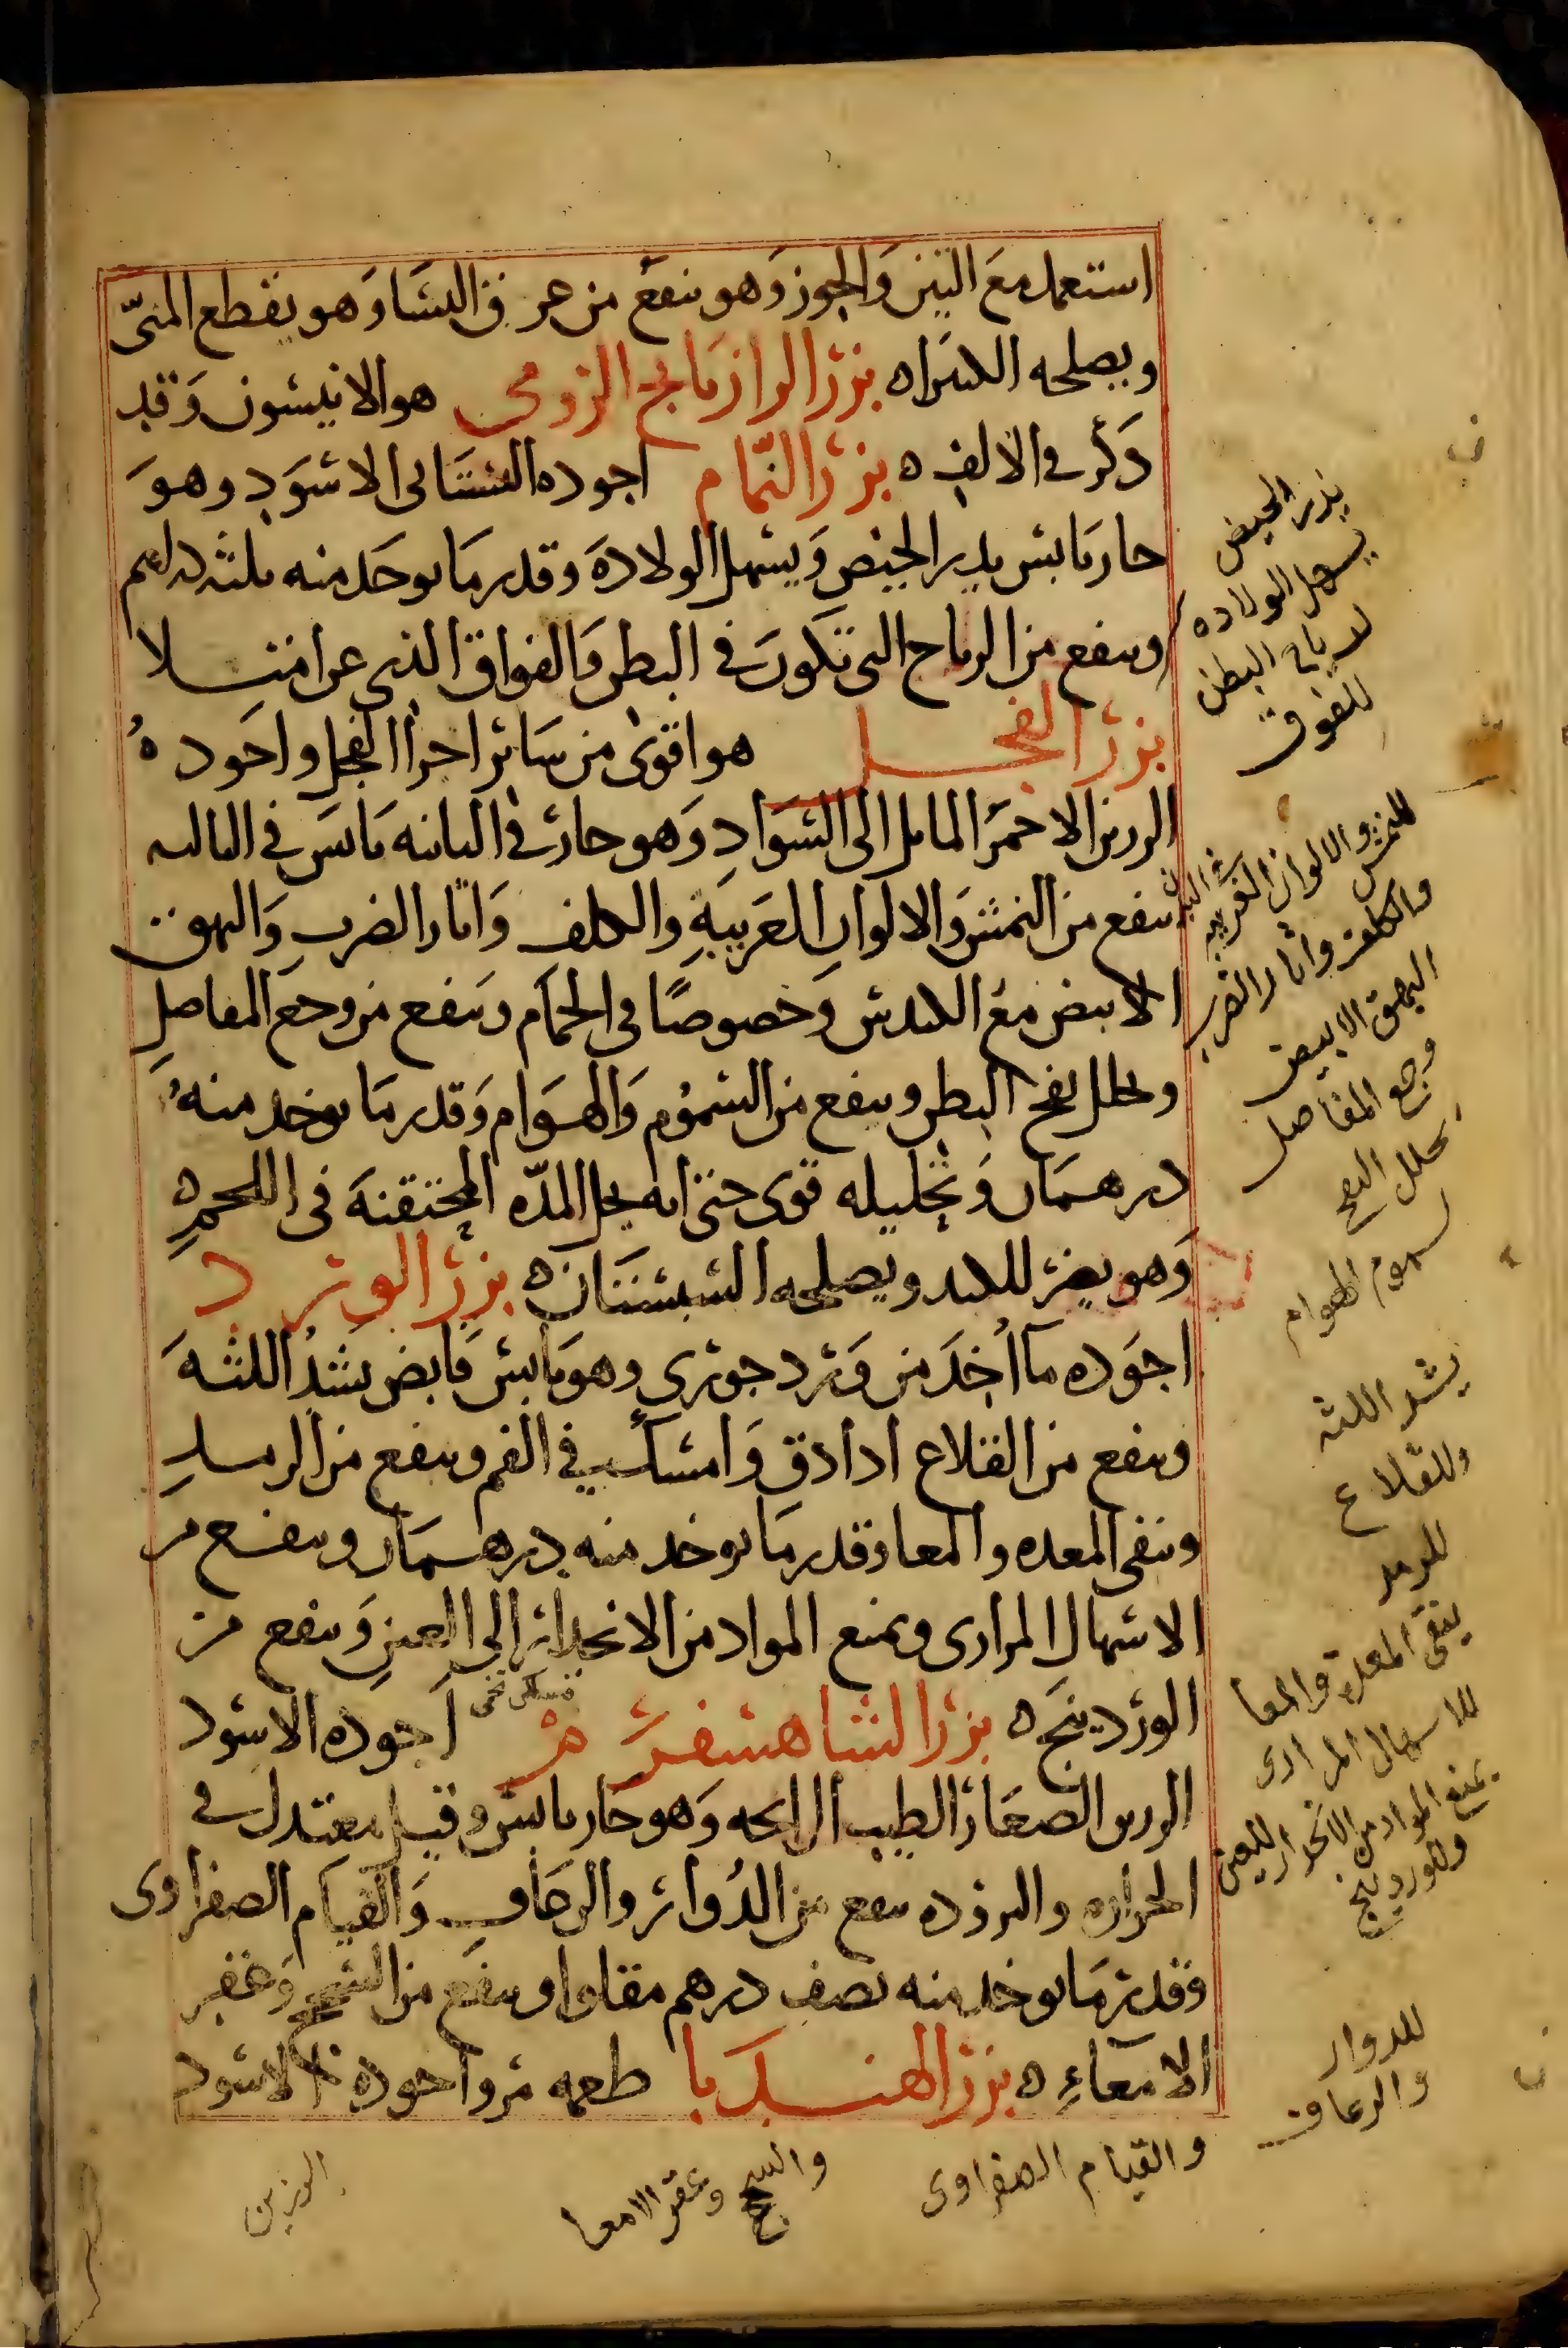 استعمل مع التين والجوز وهو ينفع من عرق النسا وهو يقطع المنيّ
ويصلحه الكثيراه بزر الرازيانج الرومي هو الانيسون وقد
ذكر في الالف ه بزر النمّام اجوده البستاني الاسود وهو
حار يابس يدر الحيض ويسهل الولادة وقدر ما يوخذ منه ثلثه دراهم
وينفع من الرياح التى تكون في البطن والفواق الذى عن امتلا
بزر الفجل هو اقوى من سائر اجزا الفجل واجوده
الرزين الاحمر المايل الى السواد وهو حار في الثانيه يابس في الثالثه
ينفع من النمش والالوان الغريبة والكلف واثار الضرب والبهق
الابيض مع الكندس وخصوصًا فى الحمام وينفع من وجع المفاصل
ويحلل نفخ البطن وينفع من السموم والهوام وقدر ما يوخذ منه
درهمان وتحليله قوى حتى انه يحل المدّه المحتقنة فى اللحم ه
وهو يضر للكبد ويصلحه السبستان ه بزر الورد
اجوده ما أخذ من ورد جورى وهو يابس قابض يشد اللثة
وينفع من القلاع اذا دق وامسك في الفم وينفع من الرمد
وينقى المعده والمعا وقدر ما يوخذ منه درهمان وينفع من
الاسهال المرارى ويمنع المواد من الانحدار الى العين وينفع من
الوردينج ه بزر الشاهسفرهر اجوده الاسود
الرزين الصغار الطيب الرايحه وهو حار يابس وقيل معتدل في
الحراره والبروده ينفع من الدوار والرعاف والقيام الصفراوى
وقدر ما يوخذ منه نصف درهم مقلوا وينفع من السحج وعقر
الامعاء ه بزر الهندبا طعمه مر واجوده الاسود
الرزين
يدر الحيض
يسهل الولاده
لرياح البطن
للفوق
للنمش والالوان الغريبه
والكلف واثار الضرب
البهق الابيض
وجع المفاصل
يحلل النفخ
سموم الهوام
يشد اللثه
وللقلاع
للرمد
ينقى المعدة والمعا
للاسهال المرارى
يمنع المواد من الانحدار للعين
وللوردينج
للدوار
والرعاف
والقيام الصفراوى
والسحج وعقر الامعا